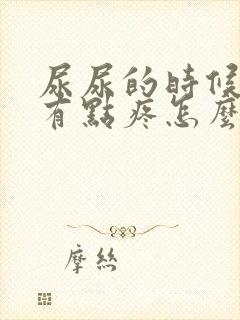 尿尿的時候
有點疼怎麼
摩絲